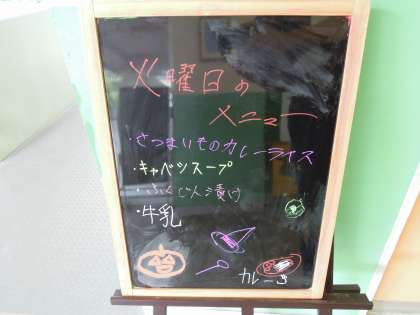 火曜日の
メニュー
・さつまいものカレーライス
・キャベツスープ
・ふくじん漬け
・牛乳